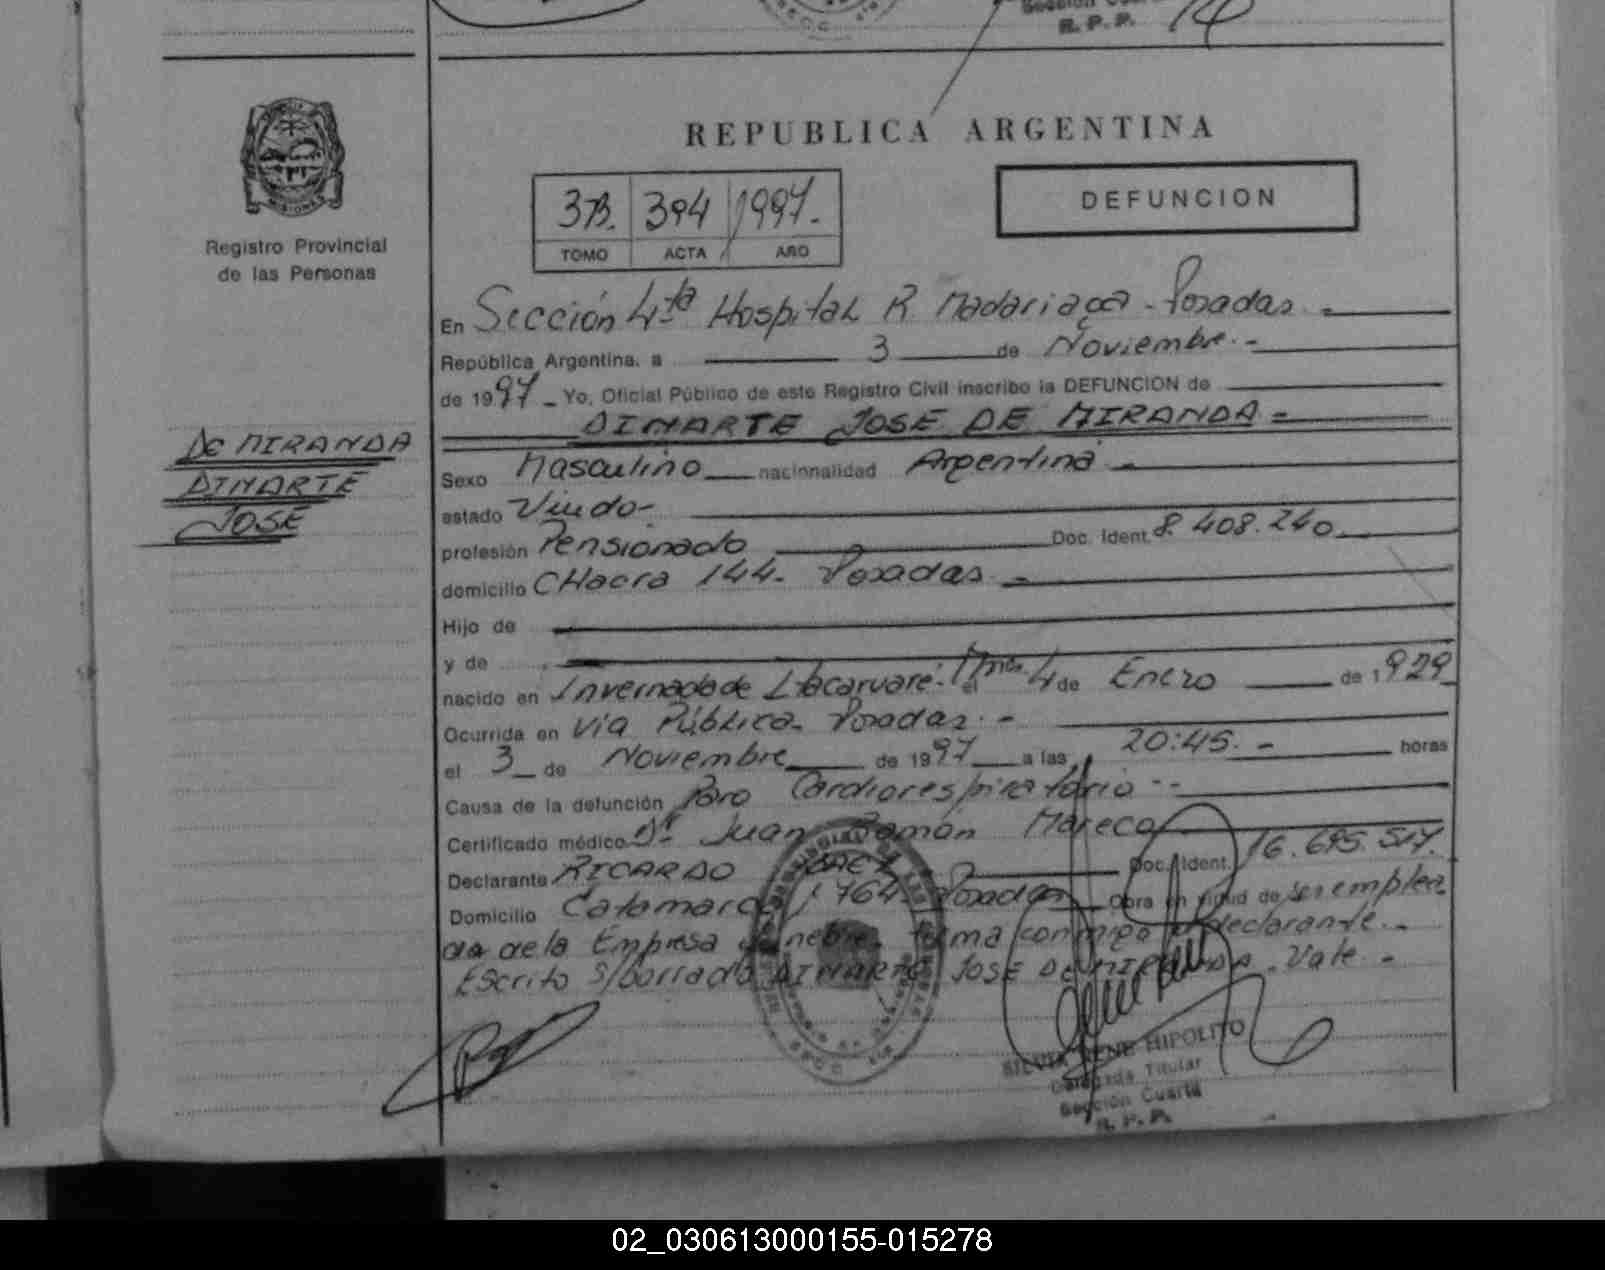 Sección Cuarta
R. P. P.
REPUBLICA ARGENTINA
MISIONES
Registro Provincial
de las Personas
373. 394 1997.
TOMO ACTA AÑO
DEFUNCION
En Sección 4ta Hospital R. Madariaga - Posadas. -
República Argentina, a 3 de Noviembre. -
de 1997 - Yo, Oficial Público de este Registro Civil inscribo la DEFUNCION de
DINARTE JOSE DE MIRANDA =
De MIRANDA
DINARTE
JOSE
Sexo Masculino nacionalidad Argentina -
estado Viudo -
profesión Pensionado Doc. Ident. 8.408.240
domicilio CHacra 144. Posadas -
Hijo de
y de
nacido en Invernada de Itacaruaré. Mnes. el 4 de Enero de 1929
Ocurrida en Vía Pública. Posadas. -
el 3 de Noviembre de 1997 a las 20:45. - horas
Causa de la defunción Paro Cardiorespiratorio - -
Certificado médico Dr. Juan Ramón Mareco
Declarante RICARDO BAEZ Doc. Ident. 16.695.517.
Domicilio Catamarca 1764 Posadas Obra en virtud de ser emplea
do de la Empresa funebre. firma conmigo el declarante. -
Escrito s/borrado DINARTE JOSE DE MIRANDA. Vale. -
SILVIA IRENE HIPOLITO
Delegada Titular
Sección Cuarta
R. P. P.
02_030613000155-015278